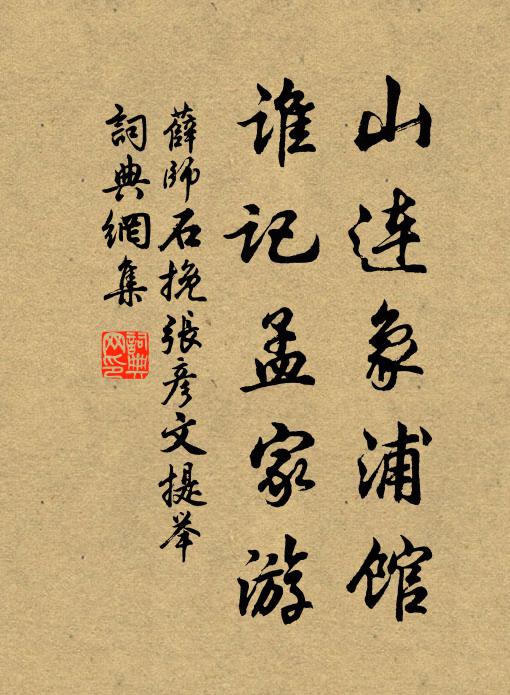 山连象浦馆
谁记孟家游
薛师石挽張彦文提举
詞典網集
詞典网印